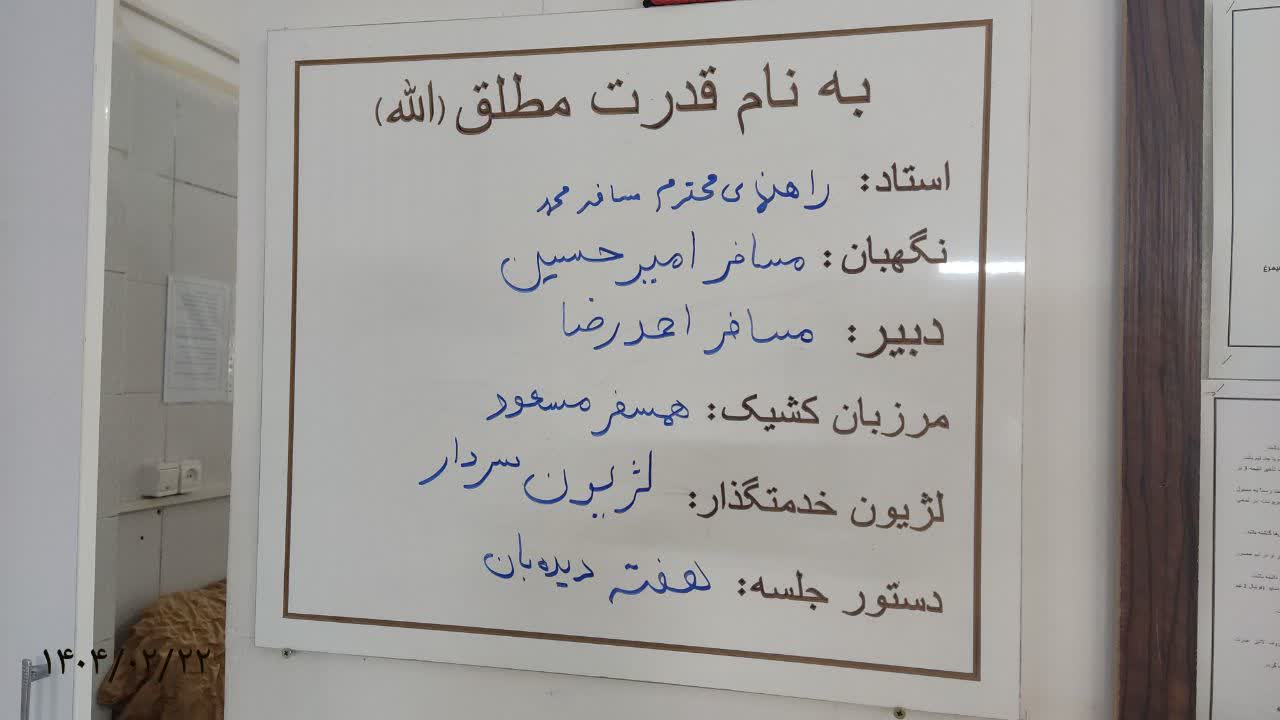 به نام قدرت مطلق (الله)
استاد: راهنمای محترم مسافر محمد
نگهبان: مسافر امیرحسین
دبیر: مسافر احمدرضا
مرزبان کشیک: همسفر مسعود
لژیون خدمتگذار: لژیون سردار
دستور جلسه: هفته دیده‌بان
۱۴۰۴/۰۲/۲۲